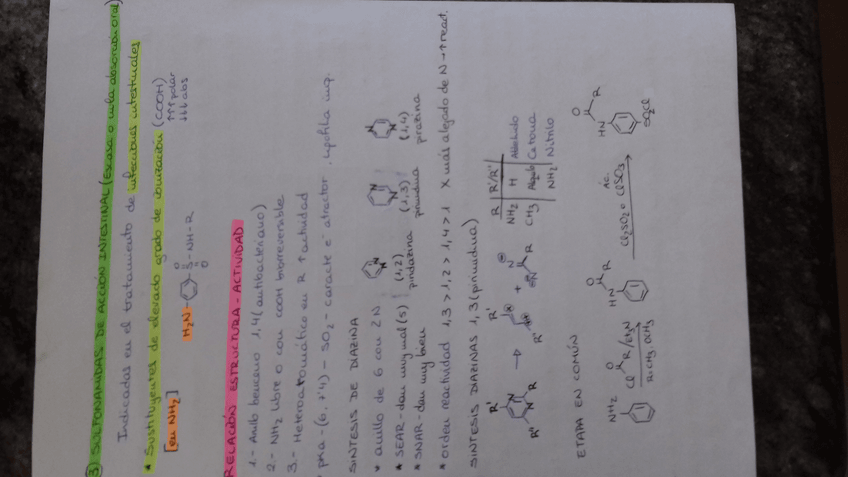 ③ SULFONAMIDAS DE ACCIÓN INTESTINAL (Escasa o nula absorción oral)
Indicadas en el tratamiento de infecciones intestinales
* Sustituyentes de elevado grado de ionización (COOH)
[en NH2]
↑↑↑ polar
↓↓↓ abs
H2N
S-NH-R
O
O
RELACIÓN ESTRUCTURA-ACTIVIDAD
1.- Anillo benceno 1,4 (antibacteriano)
2.- NH2 libre o con COOH biorreversible
3.- Heteroaromático en R ↑ actividad
pka - (6,7'4) - SO2 - caracte e- atractor, lipofilia imp.
SINTESIS DE DIAZINA
* anillo de 6 con 2N
* SEAR - dan muy mal (S)
* SNAR - dan muy bien
N N
(1,2)
piridazina
N N
(1,3)
pirimidina
N N
(1,4)
pirazina
* orden reactividad 1,3 > 1,2 > 1,4 > 1 X más alejado de N → ↑ react.
SINTESIS DIAZINAS 1,3 (pirimidina)
R'
N
N
R
R'
→
R'
R'
+
N
R
R | R'/R'
NH2 | H | Aldehido
CH3 | Alquilo | Cetona
NH2 | Nitrilo
ETAPA EN COMÚN
NH2
O
Cl R / Et3N
R: CH3 OCH3
O
R
HN
Cl2SO2 o ClSO3
O
R
HN
SO2Cl